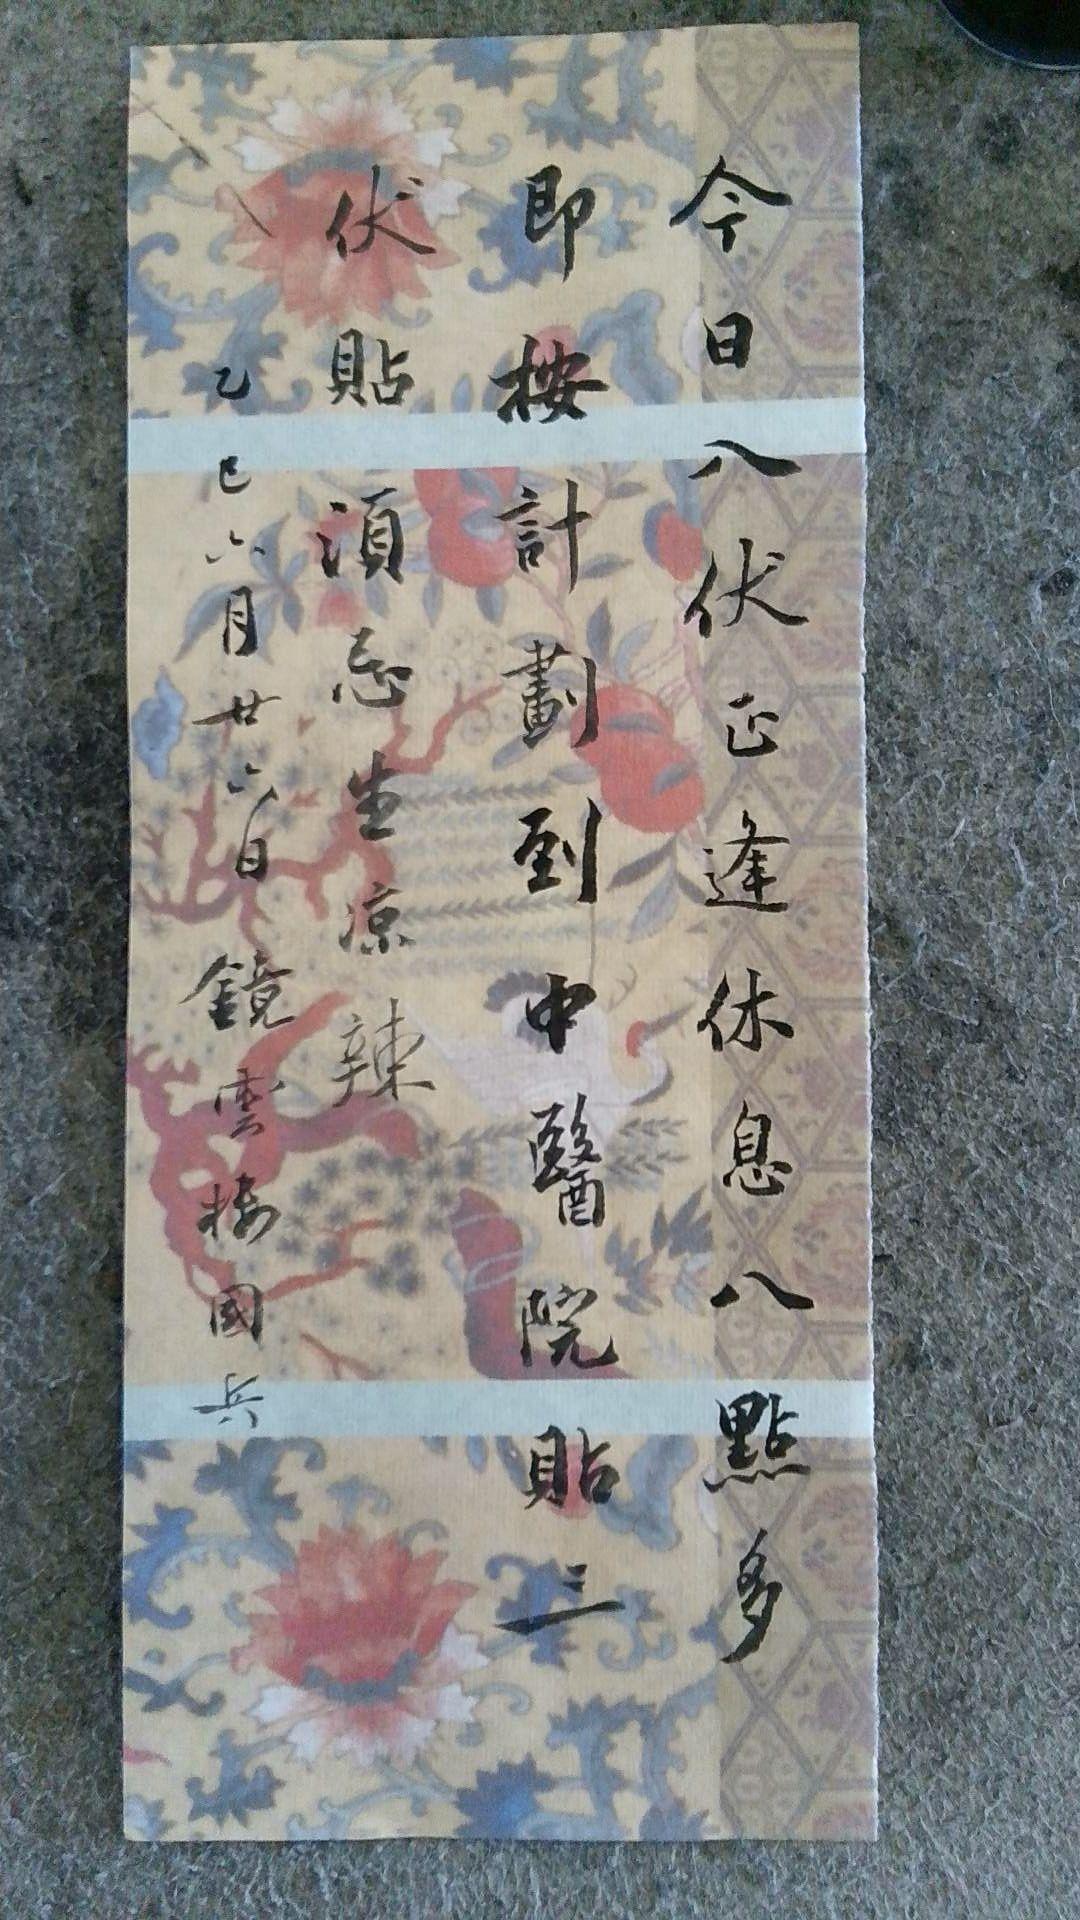 今日八伏正逢休息八點多
即按計劃到中醫院貼三
伏貼須忌生凉辣
乙巳六月廿六日鏡雲樓國兵